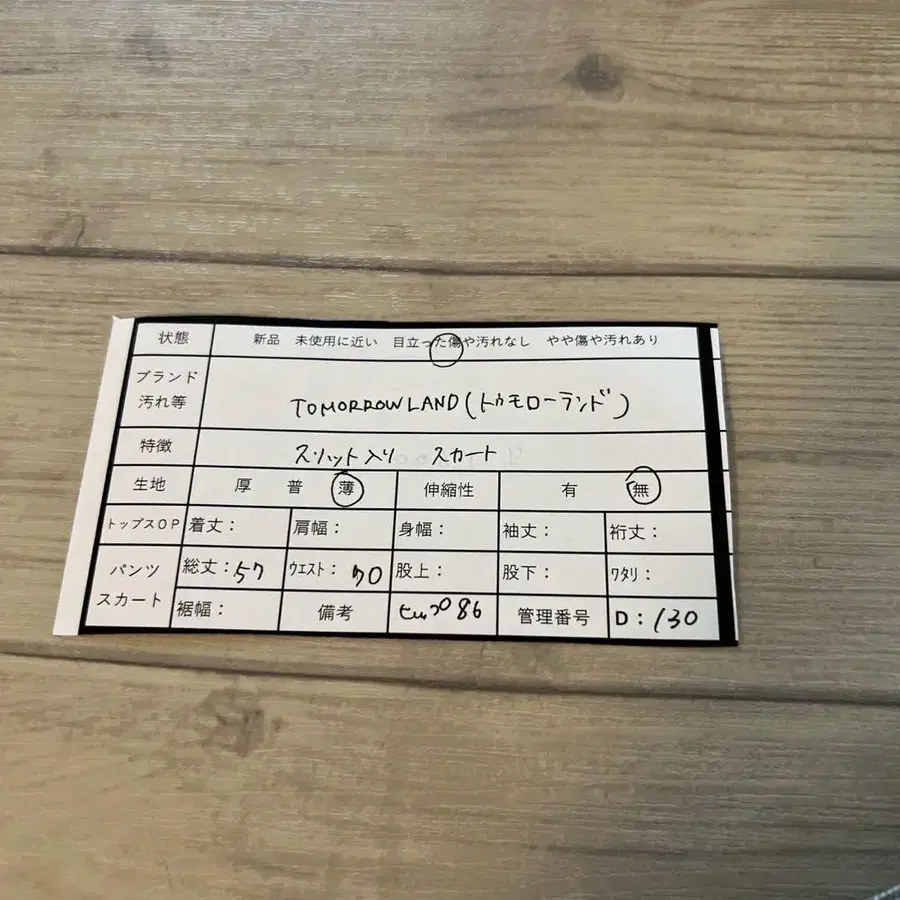 状態 新品 未使用に近い 目立った傷や汚れなし やや傷や汚れあり
ブランド
汚れ等 TOMORROWLAND(トゥモローランド)
特徴 スリット入り スカート
生地 厚 普 薄 伸縮性 有 無
トップスOP 着丈: 肩幅: 身幅: 袖丈: 裄丈:
パンツ
スカート 総丈:57 ウエスト:70 股上: 股下: ワタリ:
裾幅: 備考 ヒップ86 管理番号 D:130